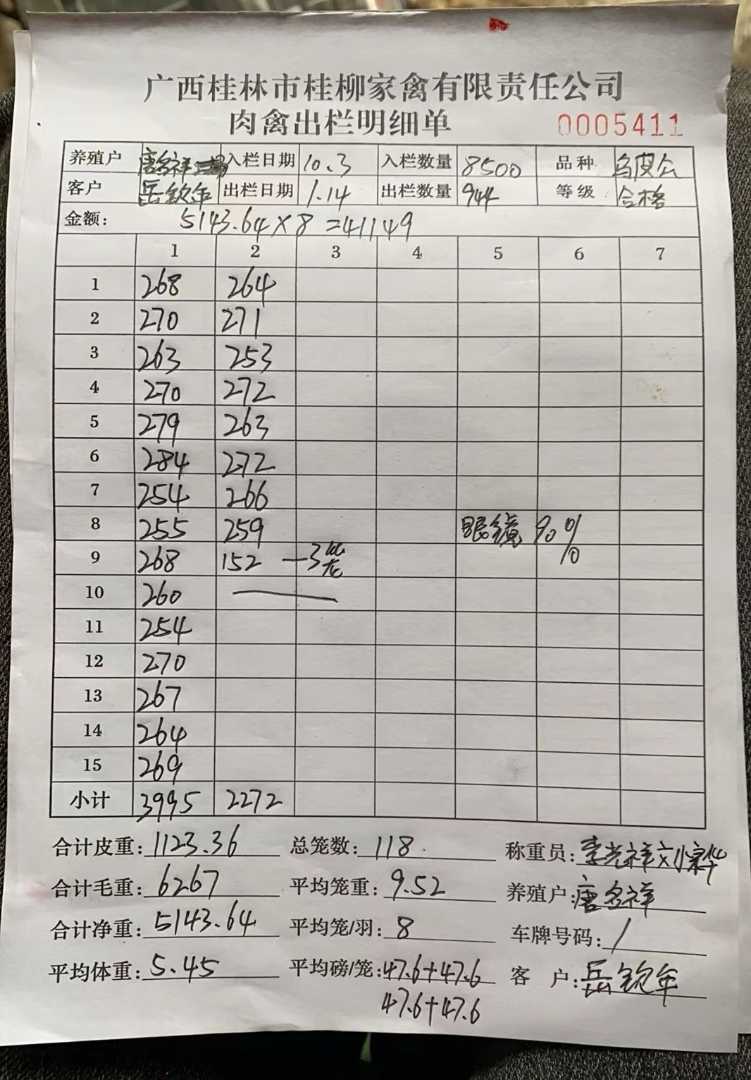 广西桂林市桂柳家禽有限责任公司
肉禽出栏明细单 0005411
养殖户 唐名祥 入栏日期 10.3 入栏数量 8500 品种 乌皮公
客户 岳钦年 出栏日期 1.14 出栏数量 944 等级 合格
金额: 5143.64×8=41149
1 2 3 4 5 6 7
1 268 264
2 270 271
3 263 253
4 270 272
5 279 263
6 284 272
7 254 266
8 255 259 眼镜 90%
9 268 152 —3笼
10 260
11 254
12 270
13 267
14 264
15 269
小计 3995 2272
合计皮重: 1123.36 总笼数: 118 称重员: 李光祥 刘
合计毛重: 6267 平均笼重: 9.52 养殖户: 唐名祥
合计净重: 5143.64 平均笼/羽: 8 车牌号码: /
平均体重: 5.45 平均磅/笼: 47.6+47.6 客 户: 岳钦年
47.6+47.6